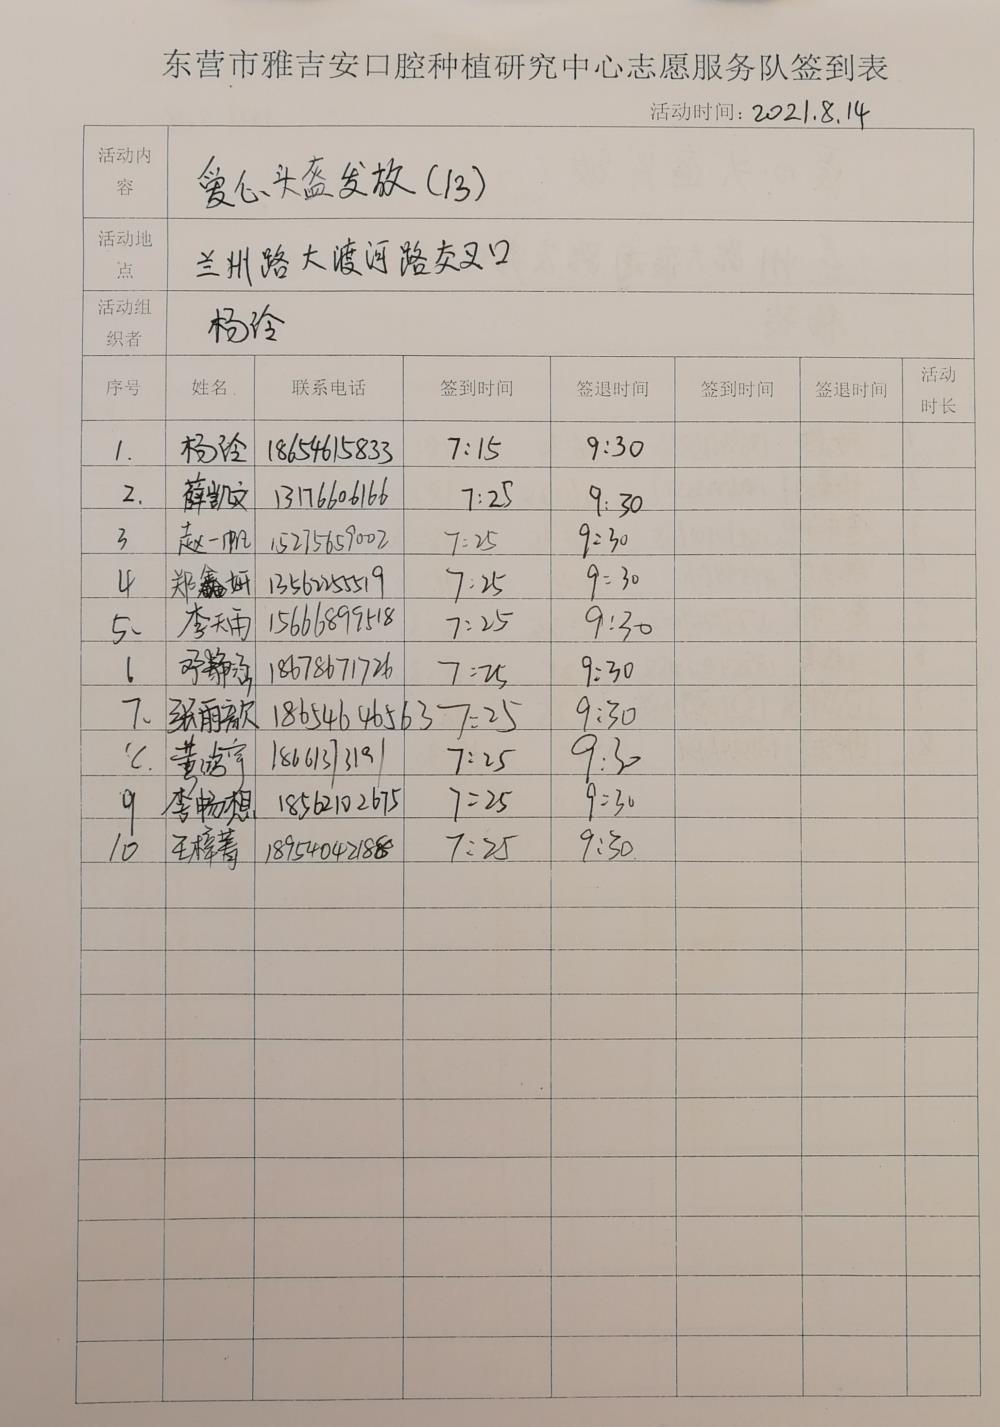 东营市雅吉安口腔种植研究中心志愿服务队签到表
活动时间: 2021.8.14
活动内容 爱心头盔发放(13)
活动地点 兰州路大渡河路交叉口
活动组织者 杨玲
序号 姓名 联系电话 签到时间 签退时间 签到时间 签退时间 活动时长
1. 杨玲 18654615833 7:15 9:30
2. 薛凯文 13176606166 7:25 9:30
3 赵一帆 15275659002 7:25 9:30
4 郑鑫妍 13562255519 7:25 9:30
5、 李天雨 15666899518 7:25 9:30
6 邓静涵 18678671726 7:25 9:30
7、 张雨歆 18654646563 7:25 9:30
8. 黄鸿宇 18661373191 7:25 9:30
9 李畅想 18562102675 7:25 9:30
10 王梓菁 7:25 9:30